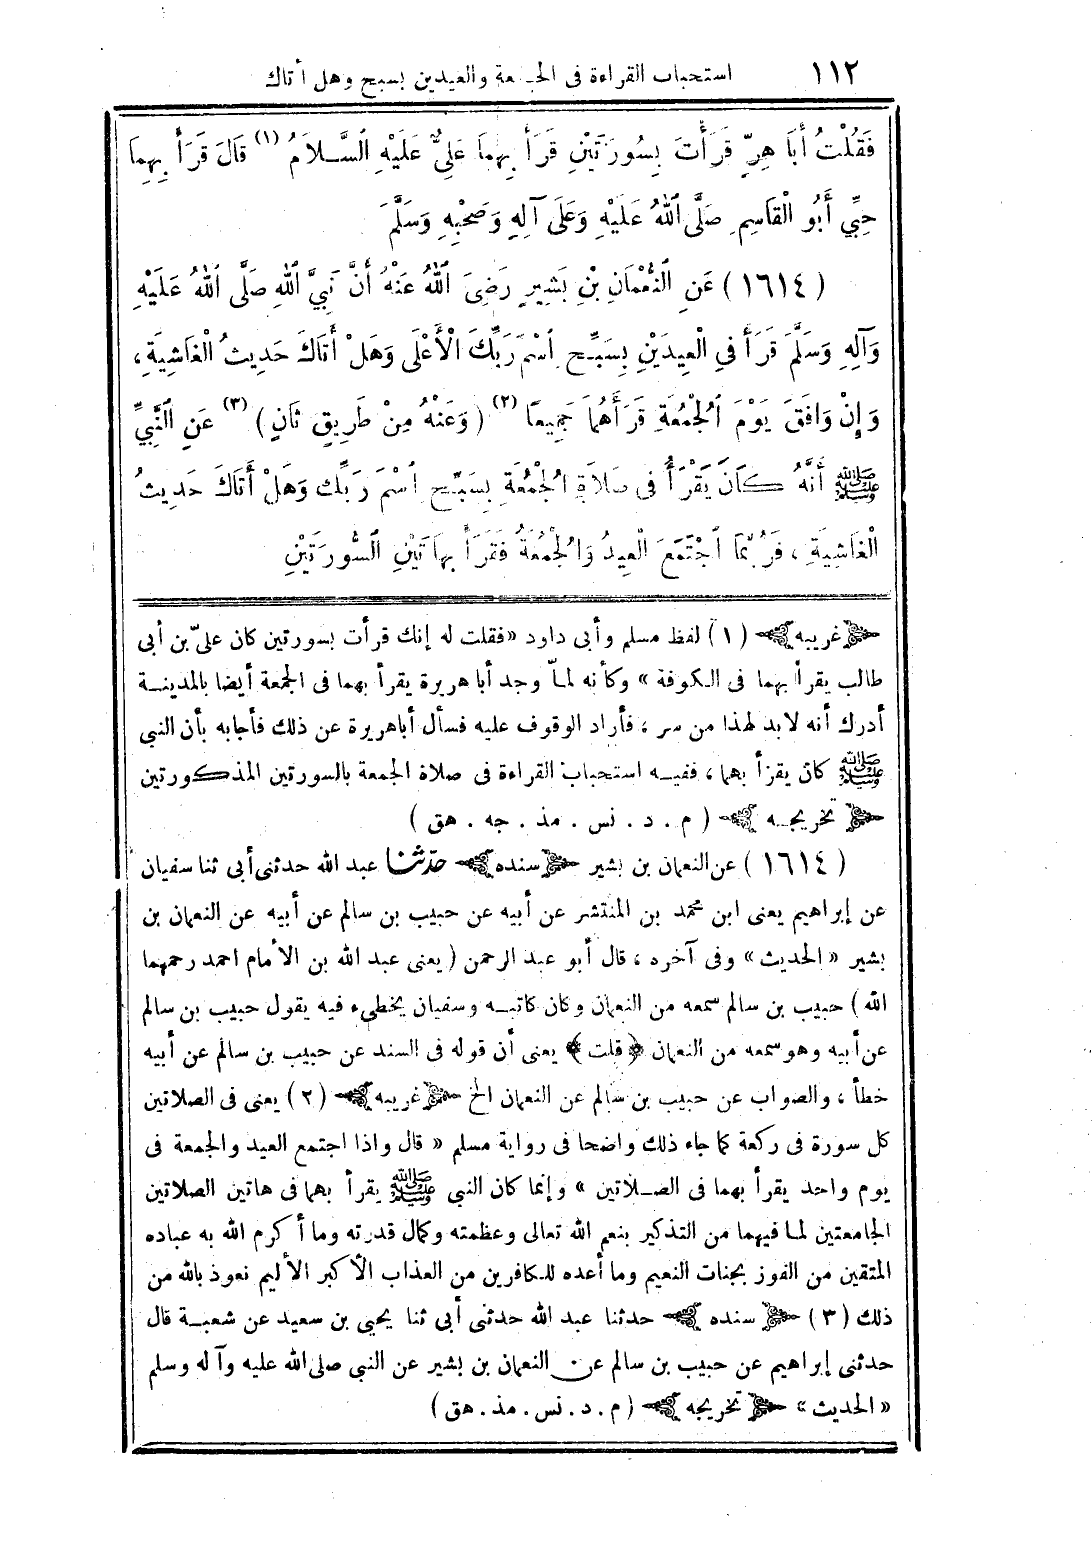 ١١٢ استحباب القراءة فى الجمعة والعيدين بسبح وهل أتاك
فَقُلْتُ أَبَا هِرٍّ قَرَأْتَ بِسُورَتَيْنِ قَرَأَ بِهِمَا عَلِيٌّ عَلَيْهِ السَّلَامُ (١) قَالَ قَرَأَ بِهِمَا
حِبِّي أَبُو الْقَاسِمِ صَلَّى اللهُ عَلَيْهِ وَعَلَى آلِهِ وَصَحْبِهِ وَسَلَّمَ
(١٦١٤) عَنِ النُّعْمَانِ بْنِ بَشِيرٍ رَضِىَ اللهُ عَنْهُ أَنَّ نَبِيَّ اللهِ صَلَّى اللهُ عَلَيْهِ
وَآلِهِ وَسَلَّمَ قَرَأَ فِي الْعِيدَيْنِ بِسَبِّحِ اسْمَ رَبِّكَ الْأَعْلَى وَهَلْ أَتَاكَ حَدِيثُ الْغَاشِيَةِ ،
وَإِنْ وَافَقَ يَوْمَ الْجُمُعَةِ قَرَأَهُمَا جَمِيعًا (٢) ( وَعَنْهُ مِنْ طَرِيقٍ ثَانٍ ) (٣) عَنِ النَّبِيِّ
ﷺ أَنَّهُ كَانَ يَقْرَأُ فِى صَلَاةِ الْجُمُعَةِ بِسَبِّحِ اسْمَ رَبِّكَ وَهَلْ أَتَاكَ حَدِيثُ
الْغَاشِيَةِ ، فَرُبَّمَا اجْتَمَعَ الْعِيدُ وَالْجُمُعَةُ فَقَرَأَ بِهَاتَيْنِ السُّورَتَيْنِ
﴿غريبه﴾ (١) لفظ مسلم وأبى داود «فقلت له إنك قرأت بسورتين كان علىّ بن أبى
طالب يقرأ بهما فى الكوفة » وكأنه لمـّا وجد أبا هريرة يقرأ بهما فى الجمعة أيضا بالمدينة
أدرك أنه لا بد لهذا من سر ، فأراد الوقوف عليه فسأل أباهريرة عن ذلك فأجابه بأن النبى
ﷺ كان يقرأ بهما ، ففيه استحباب القراءة فى صلاة الجمعة بالسورتين المذكورتين
﴿تخريجه﴾ ( م . د . نس . مذ . جه . هق )
(١٦١٤) عن النعمان بن بشير ﴿سنده﴾ حدثنا عبد الله حدثنى أبى ثنا سفيان
عن إبراهيم يعنى ابن محمد بن المنتشر عن أبيه عن حبيب بن سالم عن أبيه عن النعمان بن
بشير «الحديث» وفى آخره ، قال أبو عبد الرحمن (يعنى عبد الله بن الأمام احمد رحمهما
الله ) حبيب بن سالم سمعه من النعمان وكان كاتبه وسفيان يخطىء فيه يقول حبيب بن سالم
عن أبيه وهو سمعه من النعمان ﴿قلت﴾ يعنى أن قوله فى السند عن حبيب بن سالم عن أبيه
خطأ ، والصواب عن حبيب بن سالم عن النعمان الخ ﴿غريبه﴾ (٢) يعنى فى الصلاتين
كل سورة فى ركعة كما جاء ذلك واضحا فى رواية مسلم « قال واذا اجتمع العيد والجمعة فى
يوم واحد يقرأ بهما فى الصلاتين » وإنما كان النبى ﷺ يقرأ بهما فى هاتين الصلاتين
الجامعتين لما فيهما من التذكير بنعم الله تعالى وعظمته وكمال قدرته وما أكرم الله به عباده
المتقين من الفوز بجنات النعيم وما أعده للكافرين من العذاب الأكبر الأليم نعوذ بالله من
ذلك (٣) ﴿سنده﴾ حدثنا عبد الله حدثنى أبى ثنا يحيى بن سعيد عن شعبة قال
حدثنى إبراهيم عن حبيب بن سالم عن النعمان بن بشير عن النبى صلى الله عليه وآله وسلم
«الحديث» ﴿تخريجه﴾ (م . د . نس . مذ . هق )